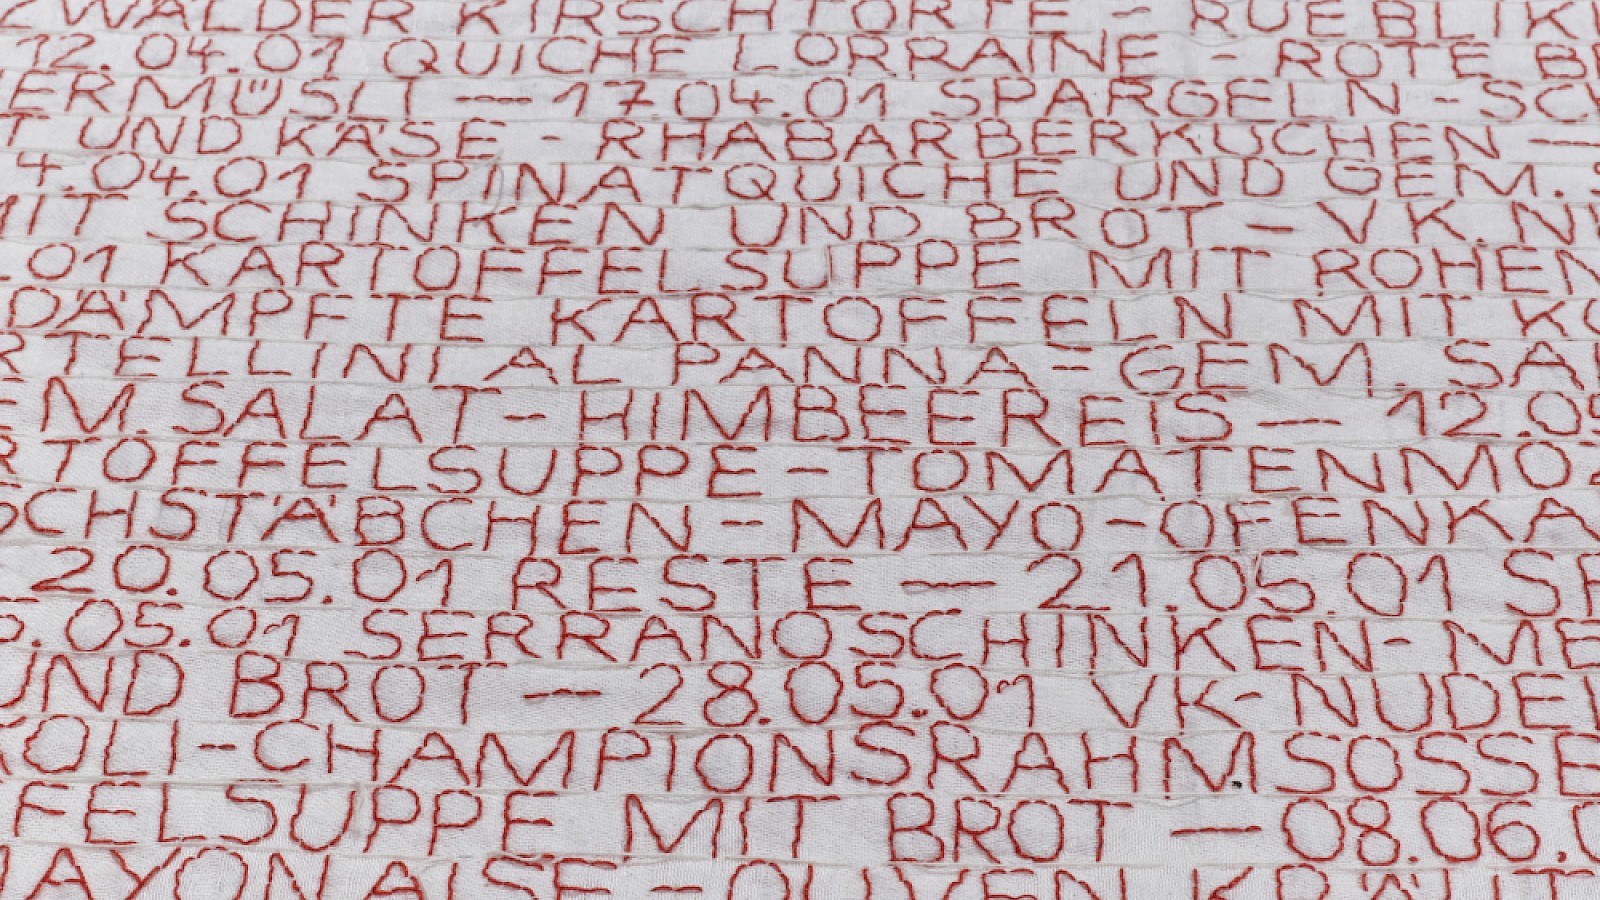 ZWÄLDER KIRSCHTORTE - RUEBLIK
12.04.01 QUICHE LORRAINE - ROTE B
ERMÜSLI — 17.04.01 SPARGELN - SC
T UND KÄSE - RHABARBERKUCHEN —
4.04.01 SPINATQUICHE UND GEM. S
MIT SCHINKEN UND BROT - VK.N
.01 KARTOFFELSUPPE MIT ROHEN
DÄMPFTE KARTOFFELN MIT K
RTELLINI AL PANNA - GEM. SA
EM. SALAT - HIMBEEREIS — 12.05
RTOFFELSUPPE - TOMATENMOZ
SCHSTÄBCHEN - MAYO - OFENKA
20.05.01 RESTE — 21.05.01 SP
.05.01 SERRANOSCHINKEN - ME
UND BROT — 28.05.01 VK-NUDEL
KOLI - CHAMPIONSRAHMSOSSE
FELSUPPE MIT BROT — 08.06.0
MAYONAISE - OLIVEN KRÄUT